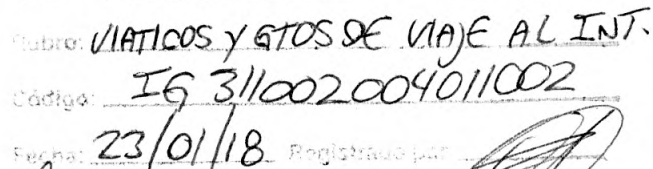 Rubro: VIATICOS Y GTOS DE VIAJE AL INT.
Código: IG 311002004011002
Fecha: 23/01/18 Registrado por: